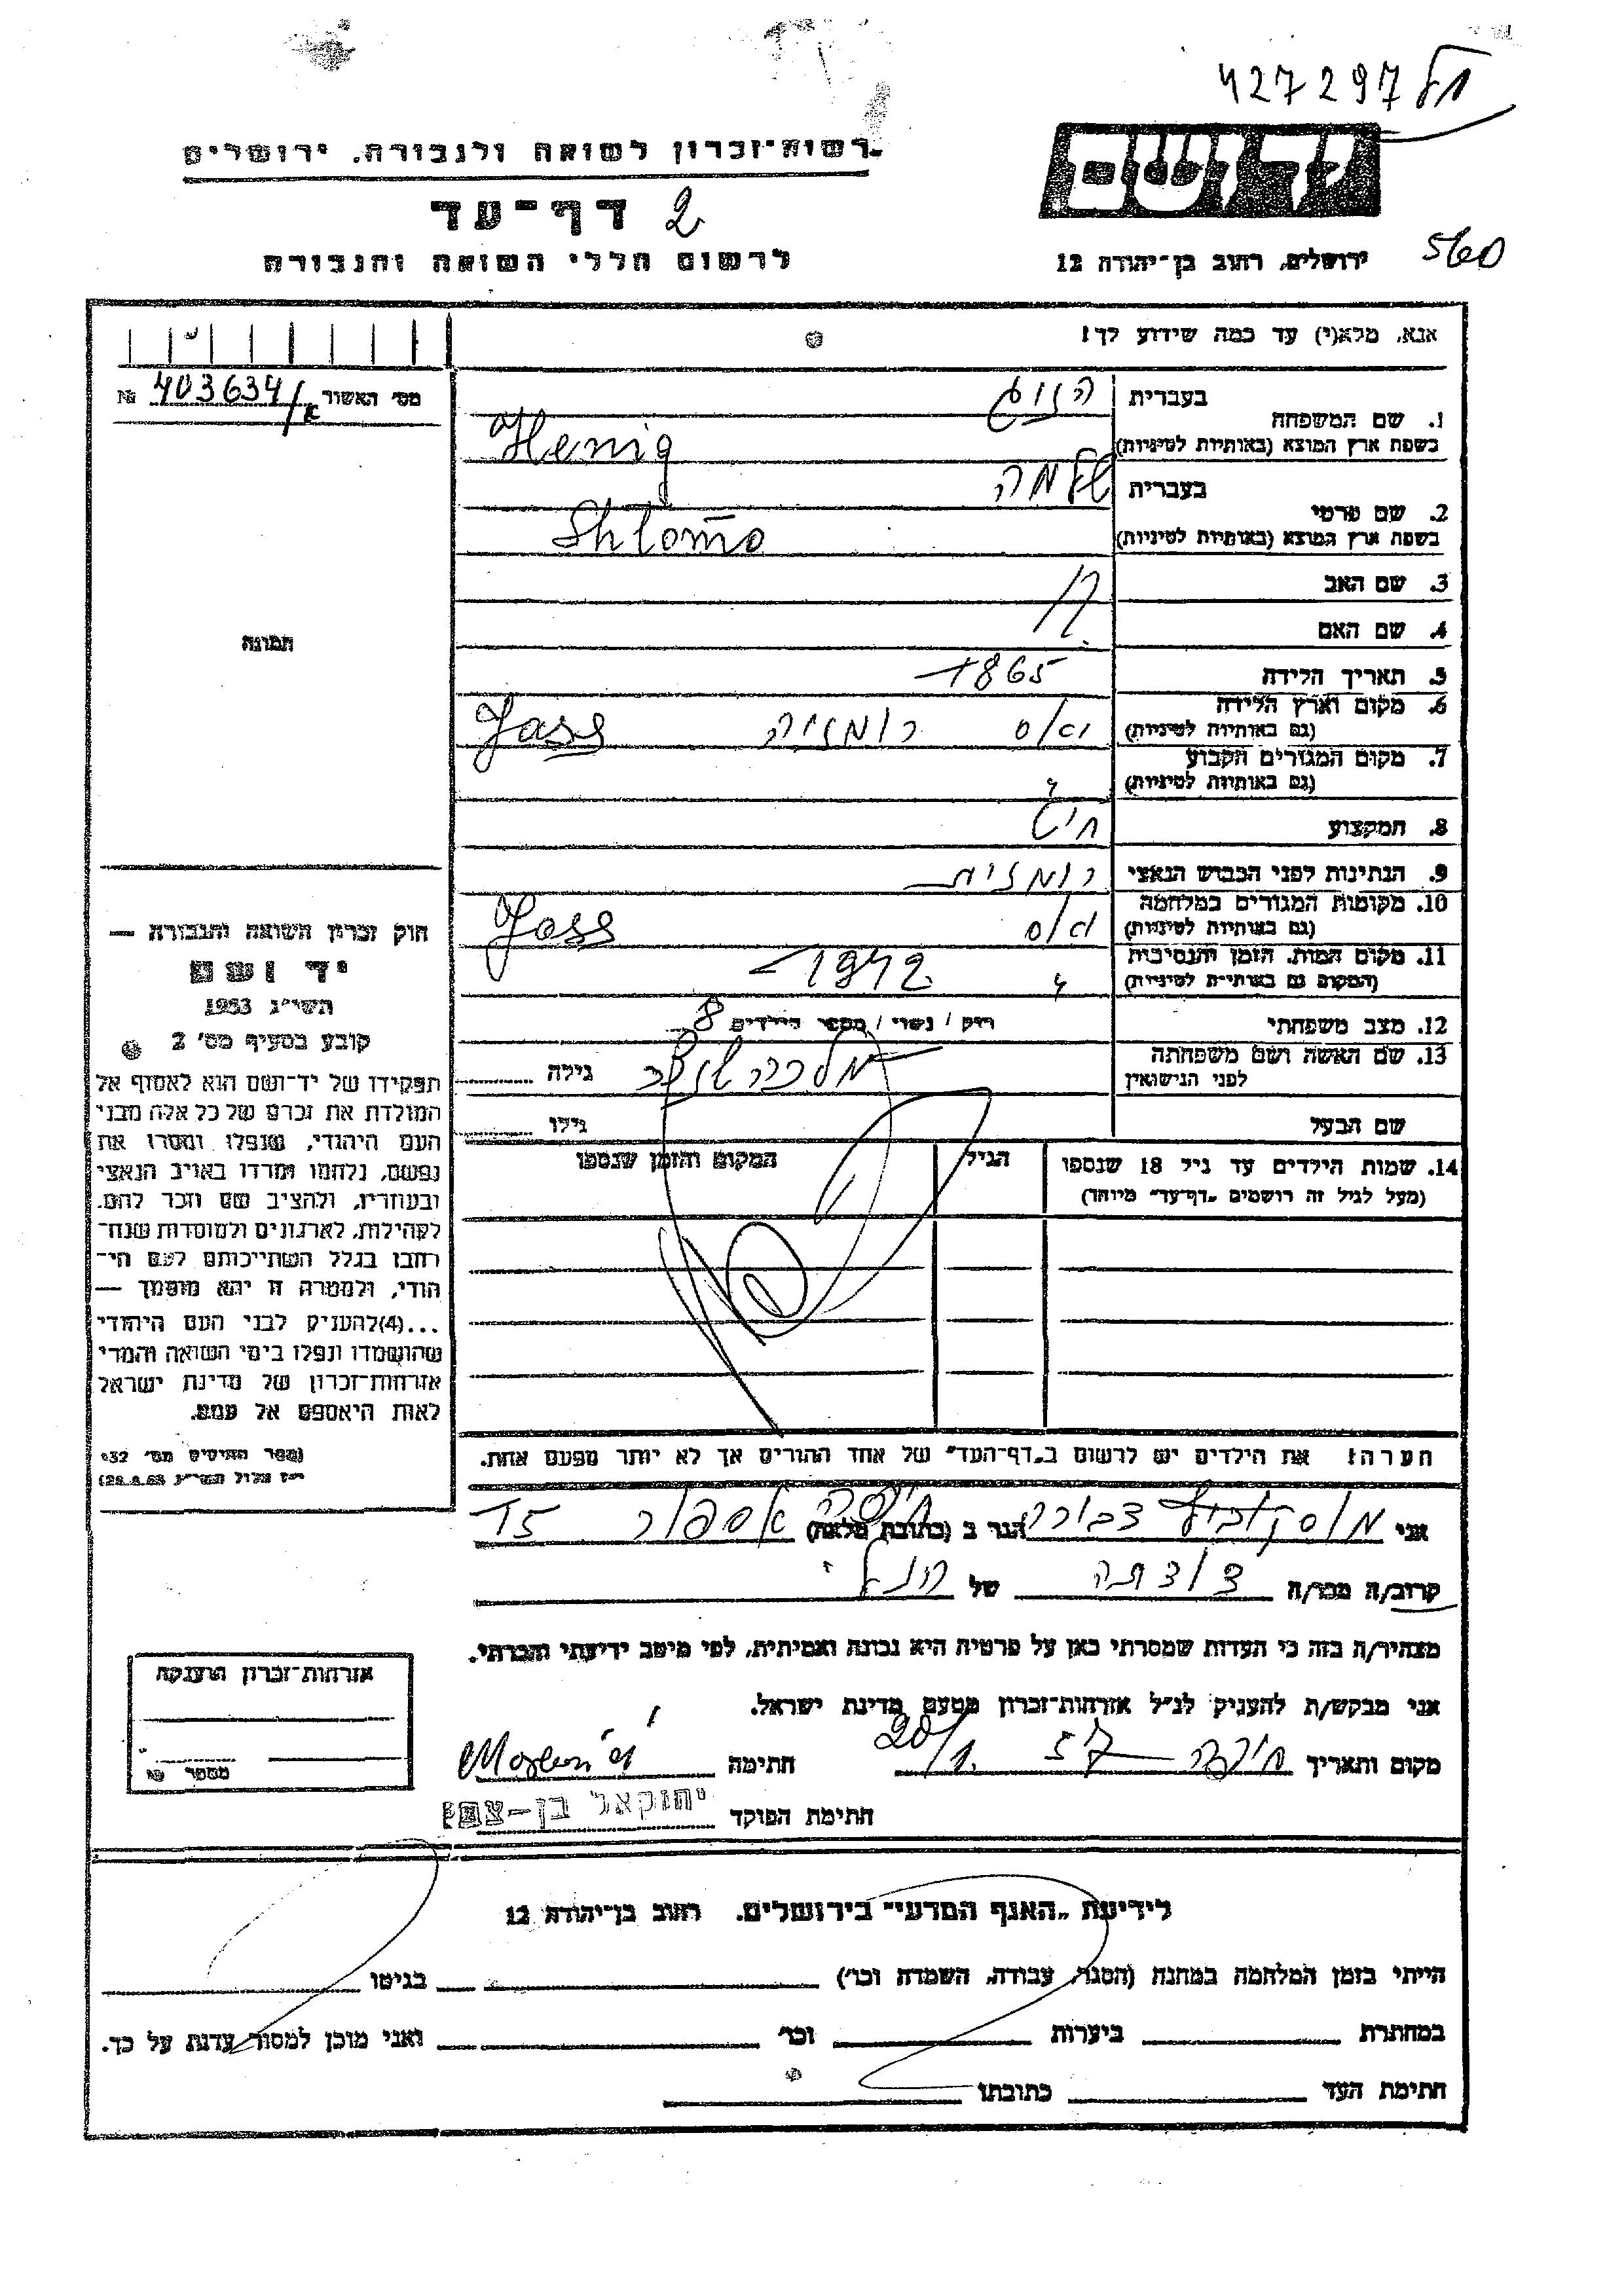 427297 תל
רשות־זכרון לשואה ולגבורה, ירושלים
יד ושם
דף־עד 2
ירושלים, רחוב בן־יהודה 12
560
לרשום חללי השואה והגבורה
אנא, מלא(י) עד כמה שידוע לך!
מס׳ האשור 403634/א №
1. שם המשפחה
בעברית
בשפת ארץ המוצא (באותיות לטיניות) Henig
2. שם פרטי
בעברית שלמה
בשפת ארץ המוצא (באותיות לטיניות) Shlomo
3. שם האב
4. שם האם
תמונה
5. תאריך הלידה 1865
6. מקום וארץ הלידה
(גם באותיות לטיניות) רומניה Jass
7. מקום המגורים הקבוע
(גם באותיות לטיניות)
8. המקצוע חיט
9. הנתינות לפני הכבוש הנאצי רומנית
10. מקומות המגורים במלחמה
(גם באותיות לטיניות) Jass
11. מקום המות, הזמן והנסיבות
(המקום גם באותיות לטיניות) 1942
12. מצב משפחתי רווק / נשוי / מספר הילדים 8
13. שם האשה ושם משפחתה
לפני הנישואין גילה
שם הבעל גילו
14. שמות הילדים עד גיל 18 שנספו
(מעל לגיל זה רושמים „דף־עד״ מיוחד)
הגיל
המקום והזמן שנספו
חוק זכרון השואה והגבורה —
יד ושם
תשי״ג 1953
קובע בסעיף מס׳ 2
תפקידו של יד־ושם הוא לאסוף אל
המולדת את זכרם של כל אלה מבני
העם היהודי, שנפלו ומסרו את
נפשם, נלחמו ומרדו באויב הנאצי
ובעוזריו, ולהציב שם וזכר להם,
לקהילות, לארגונים ולמוסדות שנח־
רבו בגלל השתייכותם לעם הי־
הודי, ולמטרה זו יהא מוסמך —
...(4)להעניק לבני העם היהודי
שהושמדו ונפלו בימי השואה והמרי
אזרחות־זכרון של מדינת ישראל
לאות היאספם אל עמם.
(ספר החוקים מס׳ 132
י״ז אלול תשי״ג 28.8.53)
הערה: את הילדים יש לרשום ב„דף־העד״ של אחד ההורים אך לא יותר מפעם אחת.
אני מוסקוביץ דבורה הגר ב (כתובת מלאה) חיפה 15
קרוב/ה מכר/ה של הנ״ל
מצהיר/ה בזה כי העדות שמסרתי כאן על פרטיה היא נכונה ואמיתית, לפי מיטב ידיעתי והכרתי.
אני מבקש/ת להעניק לנ״ל אזרחות־זכרון מטעם מדינת ישראל.
מקום ותאריך חיפה 20/1 57 חתימה
חתימת הפוקד יחזקאל בן־צבי
אזרחות־זכרון הוענקה
מספר
לידיעת „האגף המדעי״ בירושלים, רחוב בן־יהודה 12
הייתי בזמן המלחמה במחנה (הסגר, עבודה, השמדה וכו׳) בגיטו
במחתרת ביערות וכו׳ ואני מוכן למסור עדות על כך.
חתימת העד כתובתו